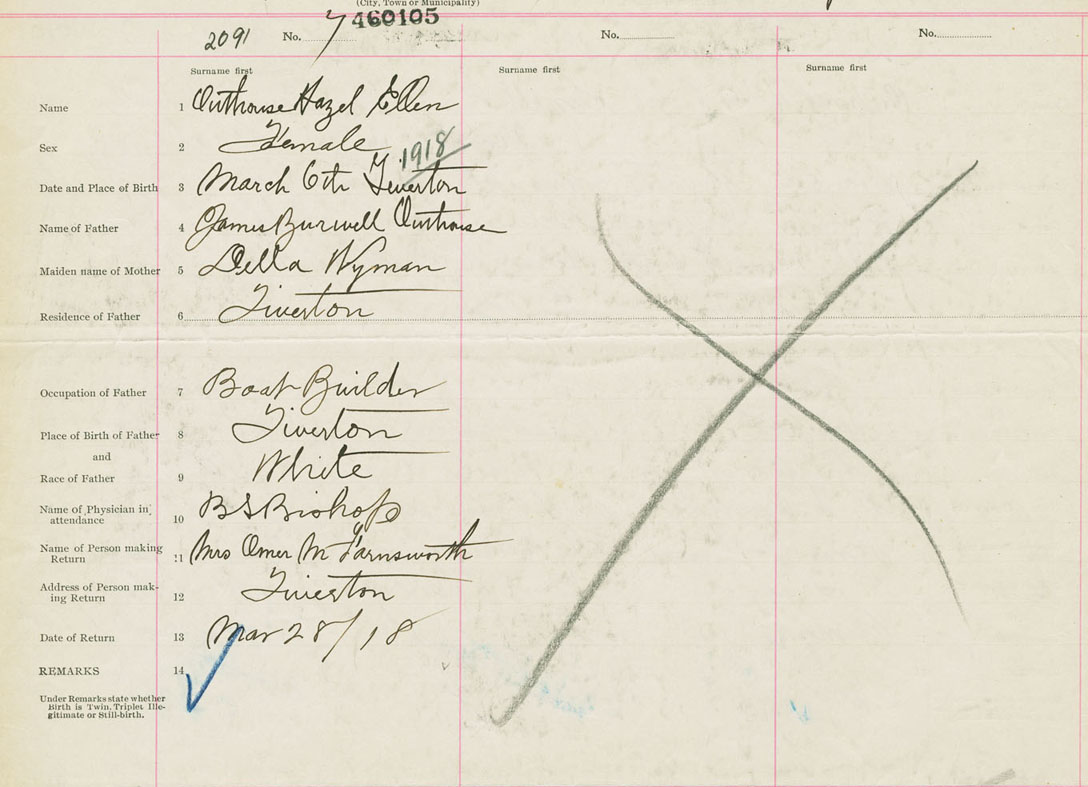 (City, Town or Municipality)
460105
2091 No. 7 No. No.
Surname first Surname first Surname first
Name 1 Outhouse Hazel Ellen
Sex 2 Female
1918
Date and Place of Birth 3 March 6th Tiverton
Name of Father 4 James Burwell Outhouse
Maiden name of Mother 5 Della Wyman
Residence of Father 6 Tiverton
Occupation of Father 7 Boat Builder
Place of Birth of Father 8 Tiverton
and
Race of Father 9 White
Name of Physician in
attendance 10 B S Bishop
Name of Person making
Return 11 Mrs Omer M Farnsworth
Address of Person mak-
ing Return 12 Tiverton
Date of Return 13 Mar 28/18
REMARKS 14
Under Remarks state whether
Birth is Twin, Triplet Ille-
gitimate or Still-birth.